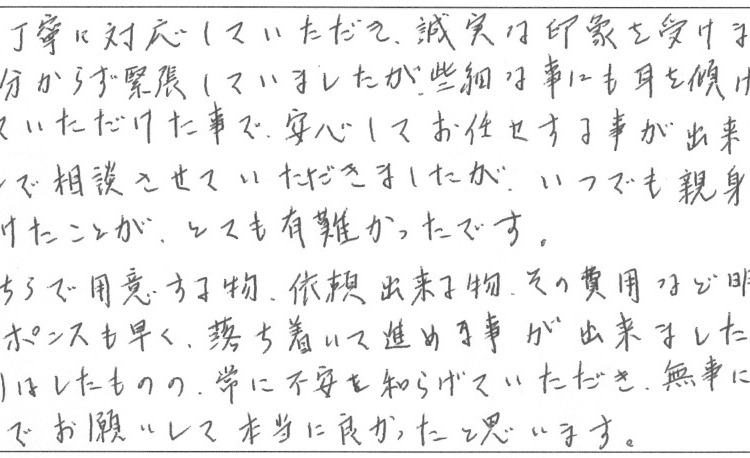 丁寧に対応していただき、誠実な印象を受けま
分からず緊張していましたが、些細な事にも耳を傾け
ていただけた事で、安心してお任せする事が出来
で相談させていただきましたが、いつでも親身
けたことが、とても有難かったです。
ちらで用意する物、依頼出来る物、その費用など明
ポンスも早く、落ち着いて進める事が出来ました
はしたものの、常に不安を和らげていただき、無事に
でお願いして本当に良かったと思います。